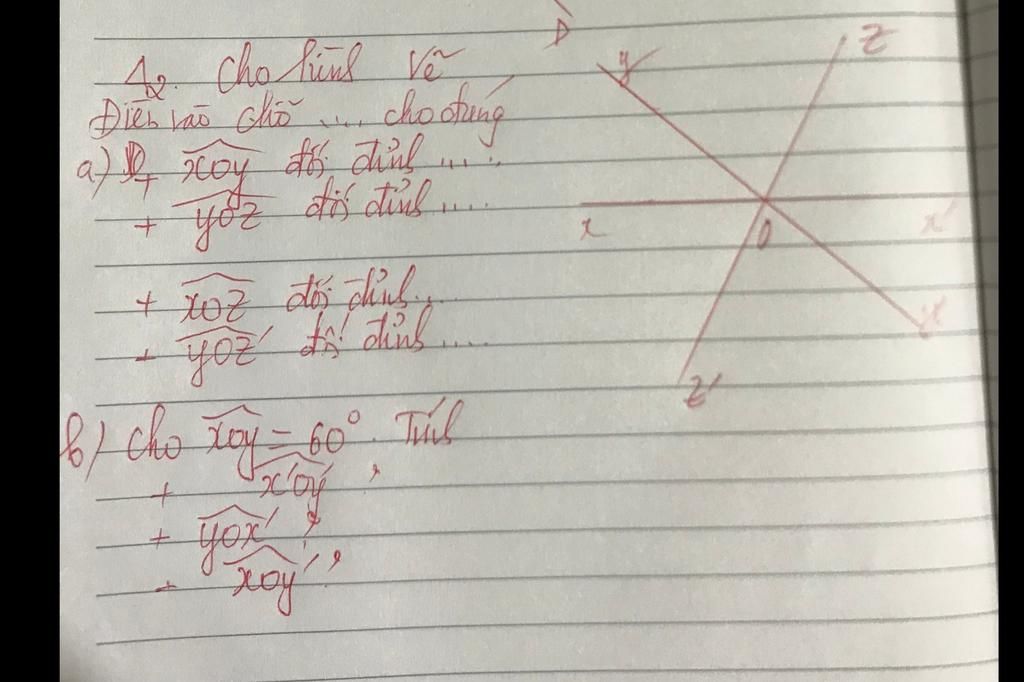 D
A2. Cho hình vẽ
Điền vào chỗ .... cho đúng
a) + xOy đối đỉnh .....
+ yOz đối đỉnh ....
+ xOz đối đỉnh...
+ yOz' đối đỉnh ....
b) Cho xOy = 60°. Tính
+ x'Oy' ,
+ yOx' ,
+ xOy' ,
y
z
x
O
x'
y'
z'